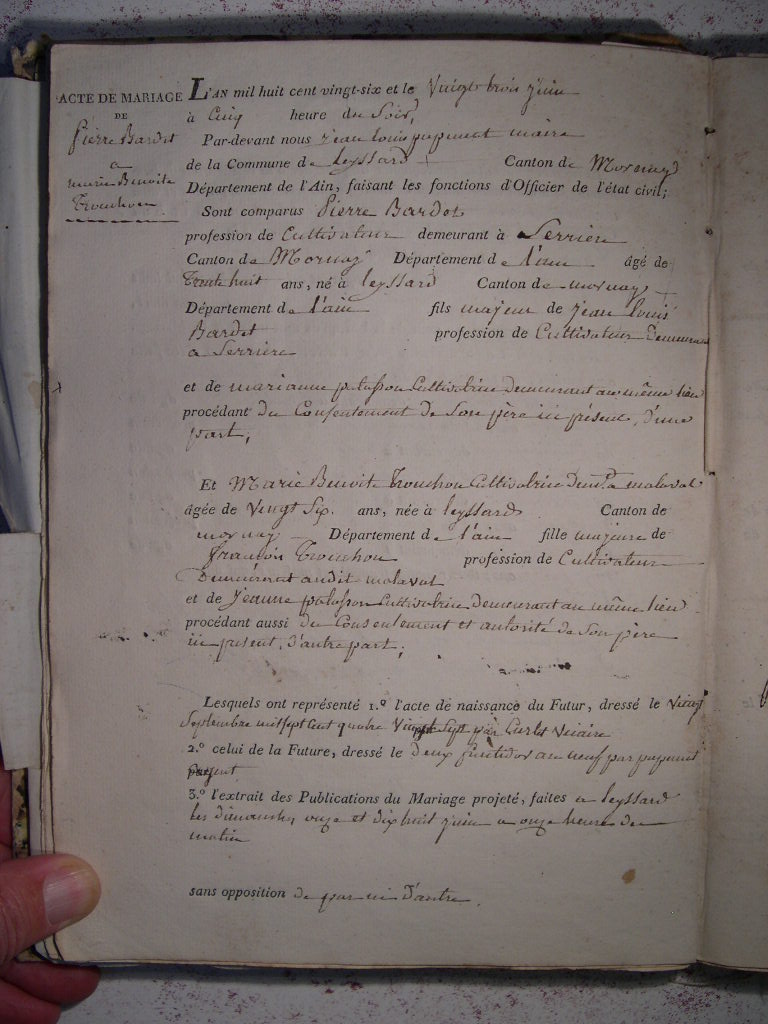 ACTE DE MARIAGE
DE
pierre Bardot
a
marie Benoite
Trouchon
L'AN mil huit cent vingt-six et le vingt trois juin
à Cinq heure du Soir,
Par-devant nous jean louis pupunat maire
de la Commune de leyssard Canton de Mornay
Département de l'Ain, faisant les fonctions d'Officier de l'état civil;
Sont comparus pierre Bardot
profession de Cultivateur demeurant à Serriere
Canton de Mornay Département de l'ain âgé de
trente huit ans, né à leyssard Canton de mornay
Département de l'ain fils majeur de jean louis
Bardot profession de Cultivateur Demeurant
a Serriere
et de marianne Cultivatrice demeurant au même lieu
procédant du Consentement de Son père ici présent, d'une
part,
Et Marie Benoite Trouchon Cultivatrice a malaval
âgée de vingt Six ans, née à leyssard Canton de
mornay Département de l'ain fille majeure de
françois Trouchon profession de Cultivateur
Demeurant audit malaval
et de jeanne Cultivatrice demeurant au même lieu
procédant aussi du Consentement et autorité de Son père
ici présent, d'autre part;
Lesquels ont représenté 1.º l'acte de naissance du Futur, dressé le vingt
Septembre mil sept Cent quatre vingt Sept par vicaire
2.º celui de la Future, dressé le deux an neuf par pupunat
3.º l'extrait des Publications du Mariage projeté, faites a leyssard
les dimanches onze et dix huit juin a onze heures du
matin
sans opposition de part ni d'autre.